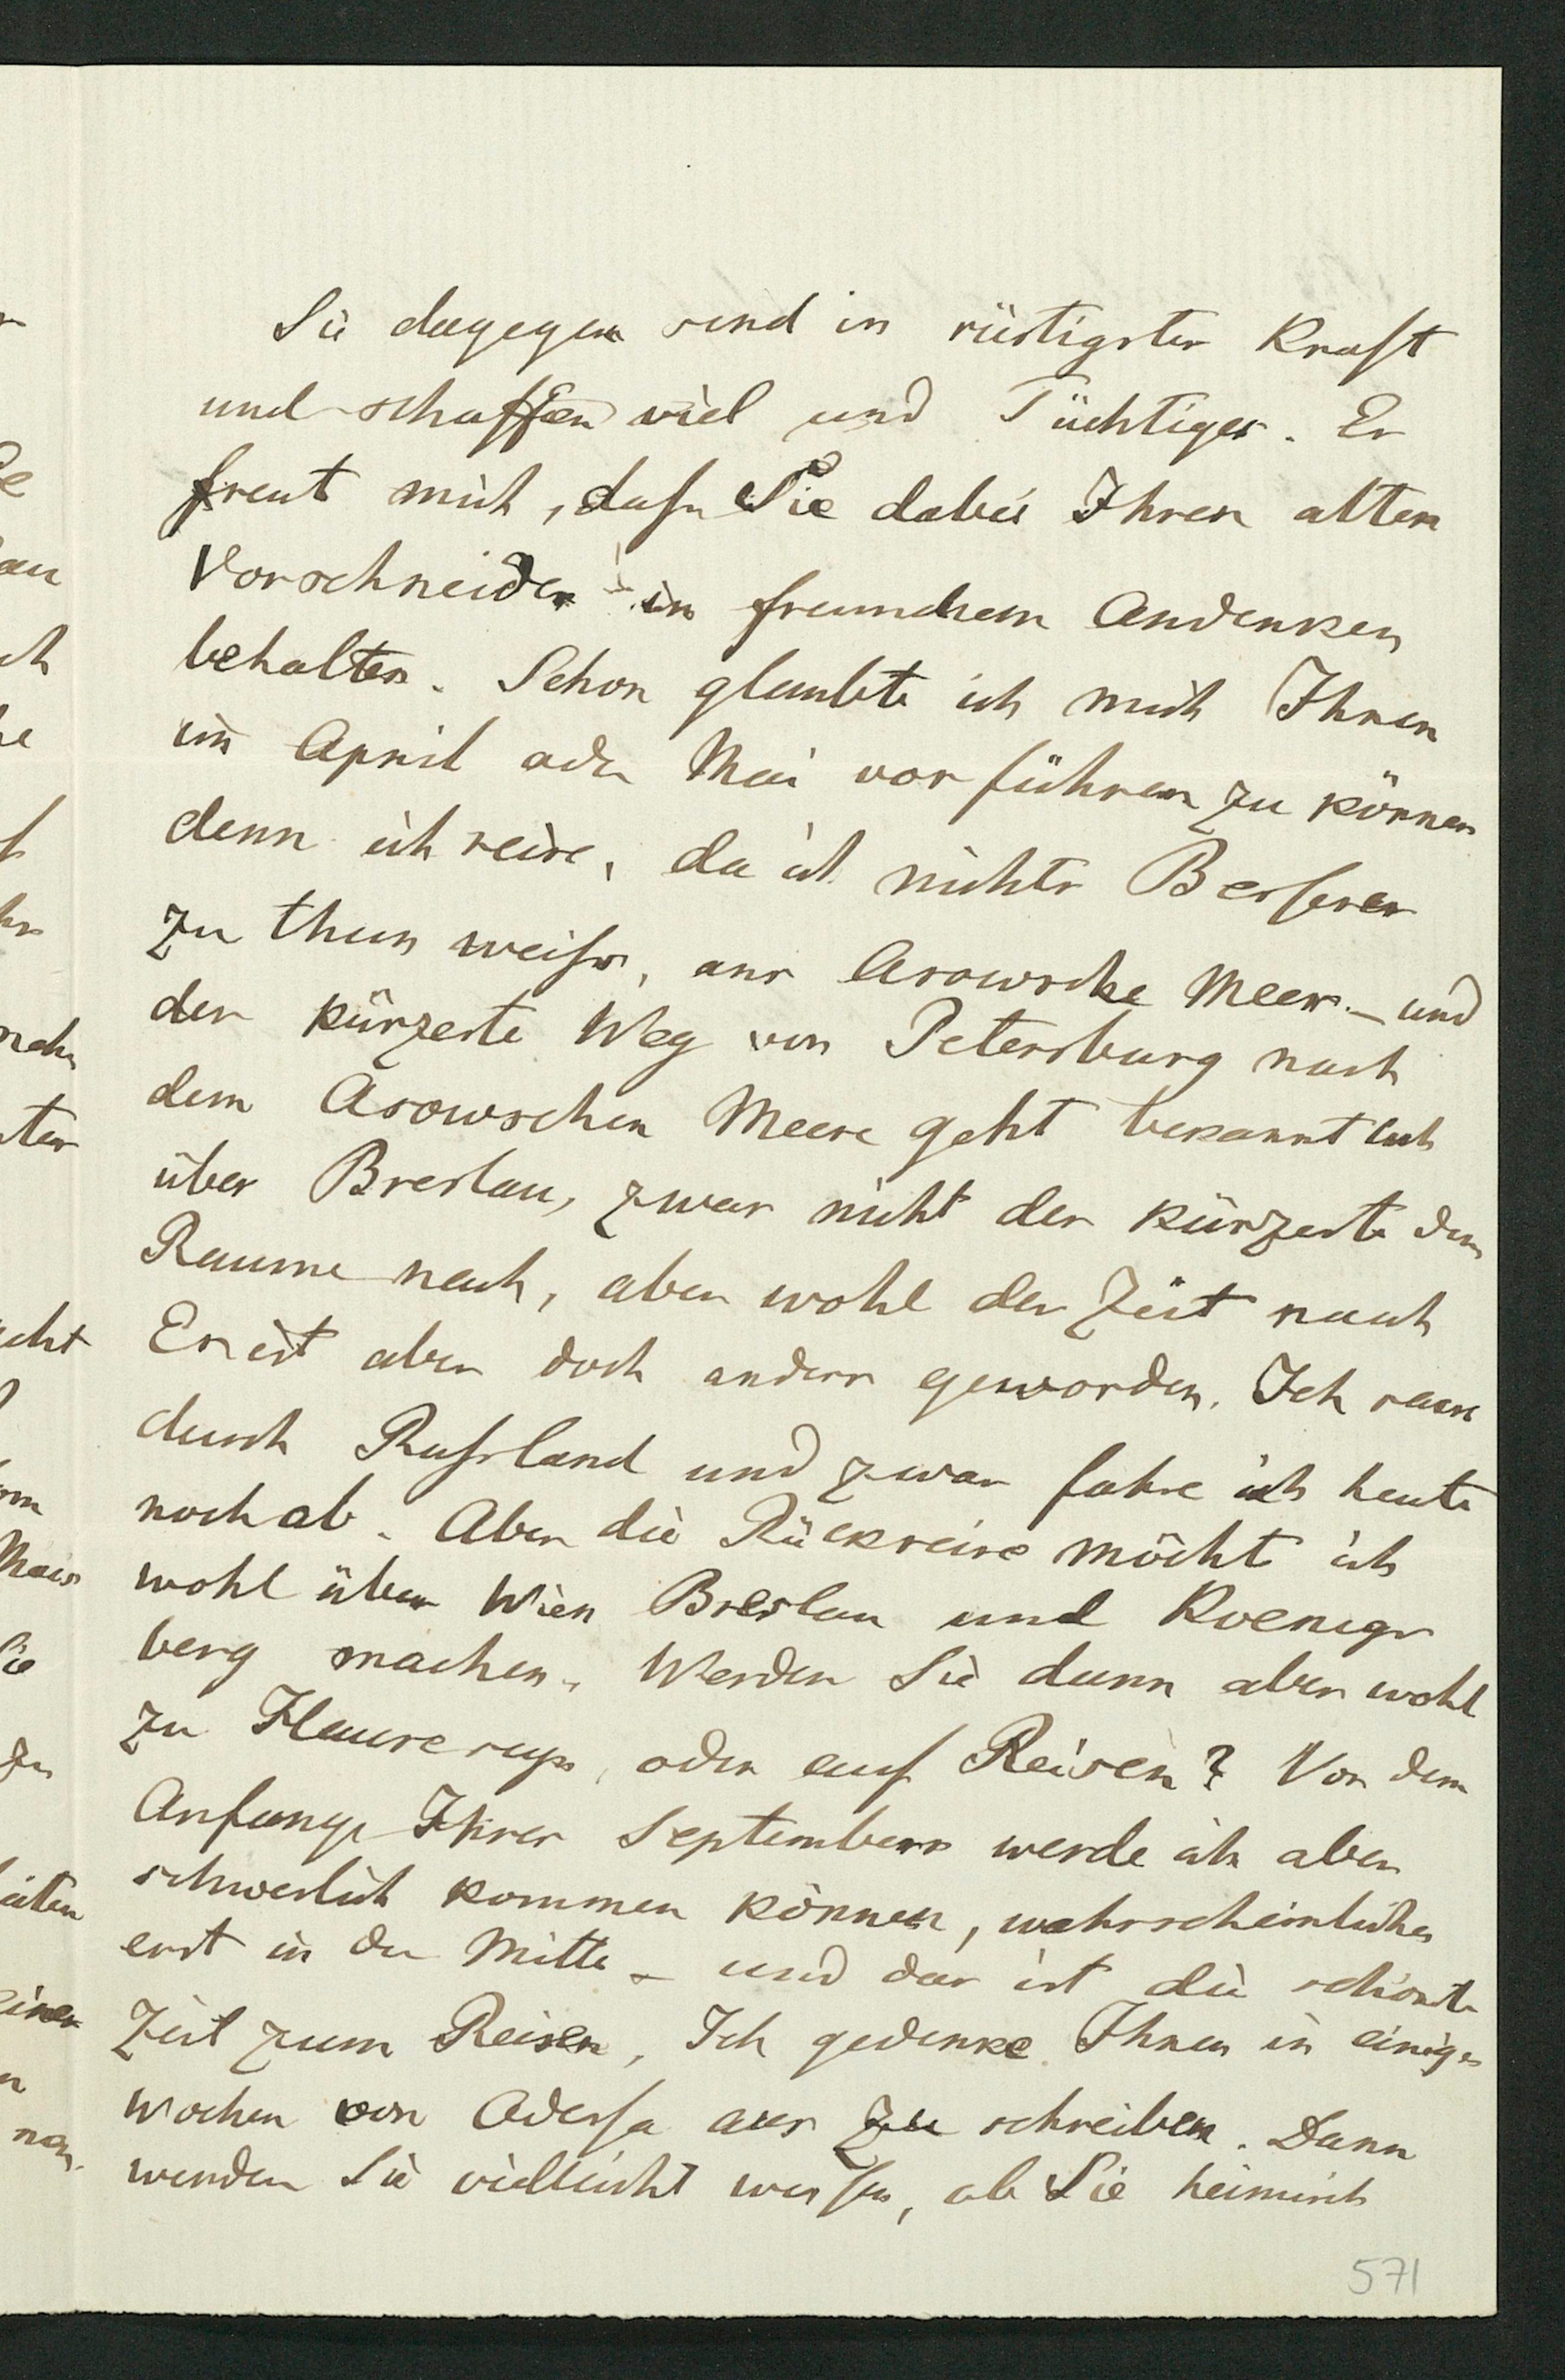 Sie dagegen sind in rüstigster Kraft
und schaffen viel und Tüchtiges. Es
freut mich, dass Sie dabei Ihren alten
Vorschneider in freundlichem Andenken
behalten. Schon glaubte ich mich Ihnen
im April oder Mai vorführen zu können
denn ich reise, da ich nichts Besseres
zu thun weiss, ans Asowsche Meer – und
der kürzeste Weg von Petersburg nach
dem Asowschen Meere geht bekanntlich
über Breslau, zwar nicht der kürzeste dem
Raume nach, aber wohl der Zeit nach
Es ist aber doch anders geworden. Ich reise
durch Russland und zwar fahre ich heute
noch ab. Aber die Rückreise möcht ich
wohl über Wien Breslau und Koenigs
berg machen. Werden Sie dann aber wohl
zu Hause seyn, oder auf Reisen? Vor dem
Anfange Ihres Septembers werde ich aber
schwerlich kommen können, wahrscheinlicher
erst in der Mitte – und das ist die schönste
Zeit zum Reisen, Ich gedenke Ihnen in einigen
Wochen von Odessa aus zu schreiben. Dann
werden Sie vielleicht wissen, ob Sie heimisch
571